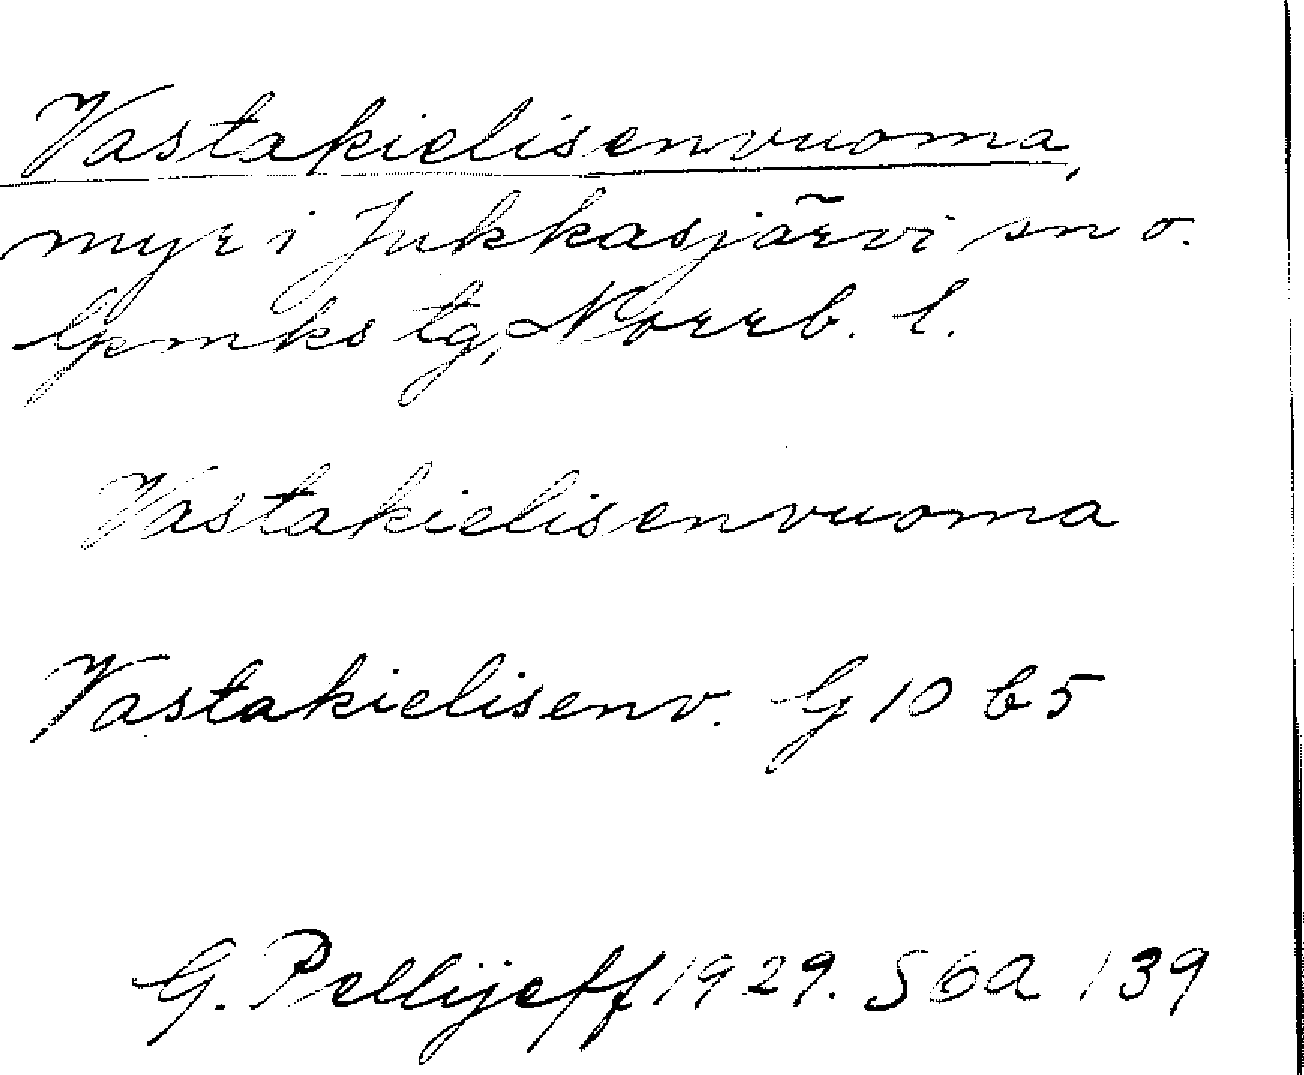 Vastakielisenvuoma,
myr i Jukkasjärvi sn o.
lpmks tg, Norrb. l.
Vastakielisenvuoma
Vastakielisenv. G 10 b5
G. Pellijeff 1929. S6a 139